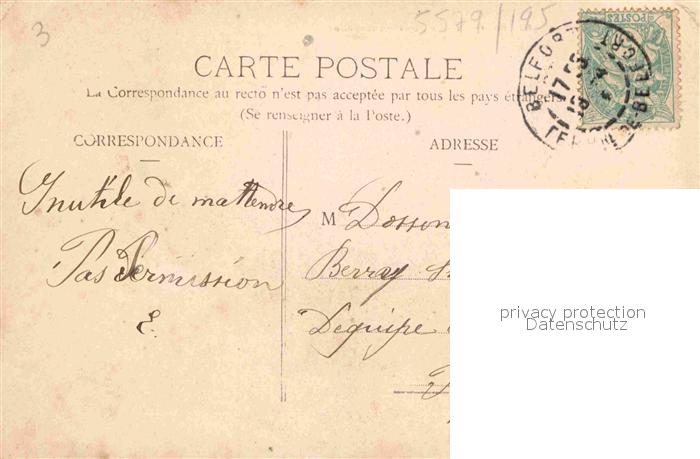 3
5579/195
POSTES
BELFORT
BELFORT
CARTE POSTALE
La Correspondance au recto n'est pas acceptée par tous les pays étrangers
(Se renseigner à la Poste.)
CORRESPONDANCE
ADRESSE
Inutile de mattendre
Pas Permission
E.
M Dosson
Berray
Dequipe
privacy protection
Datenschutz